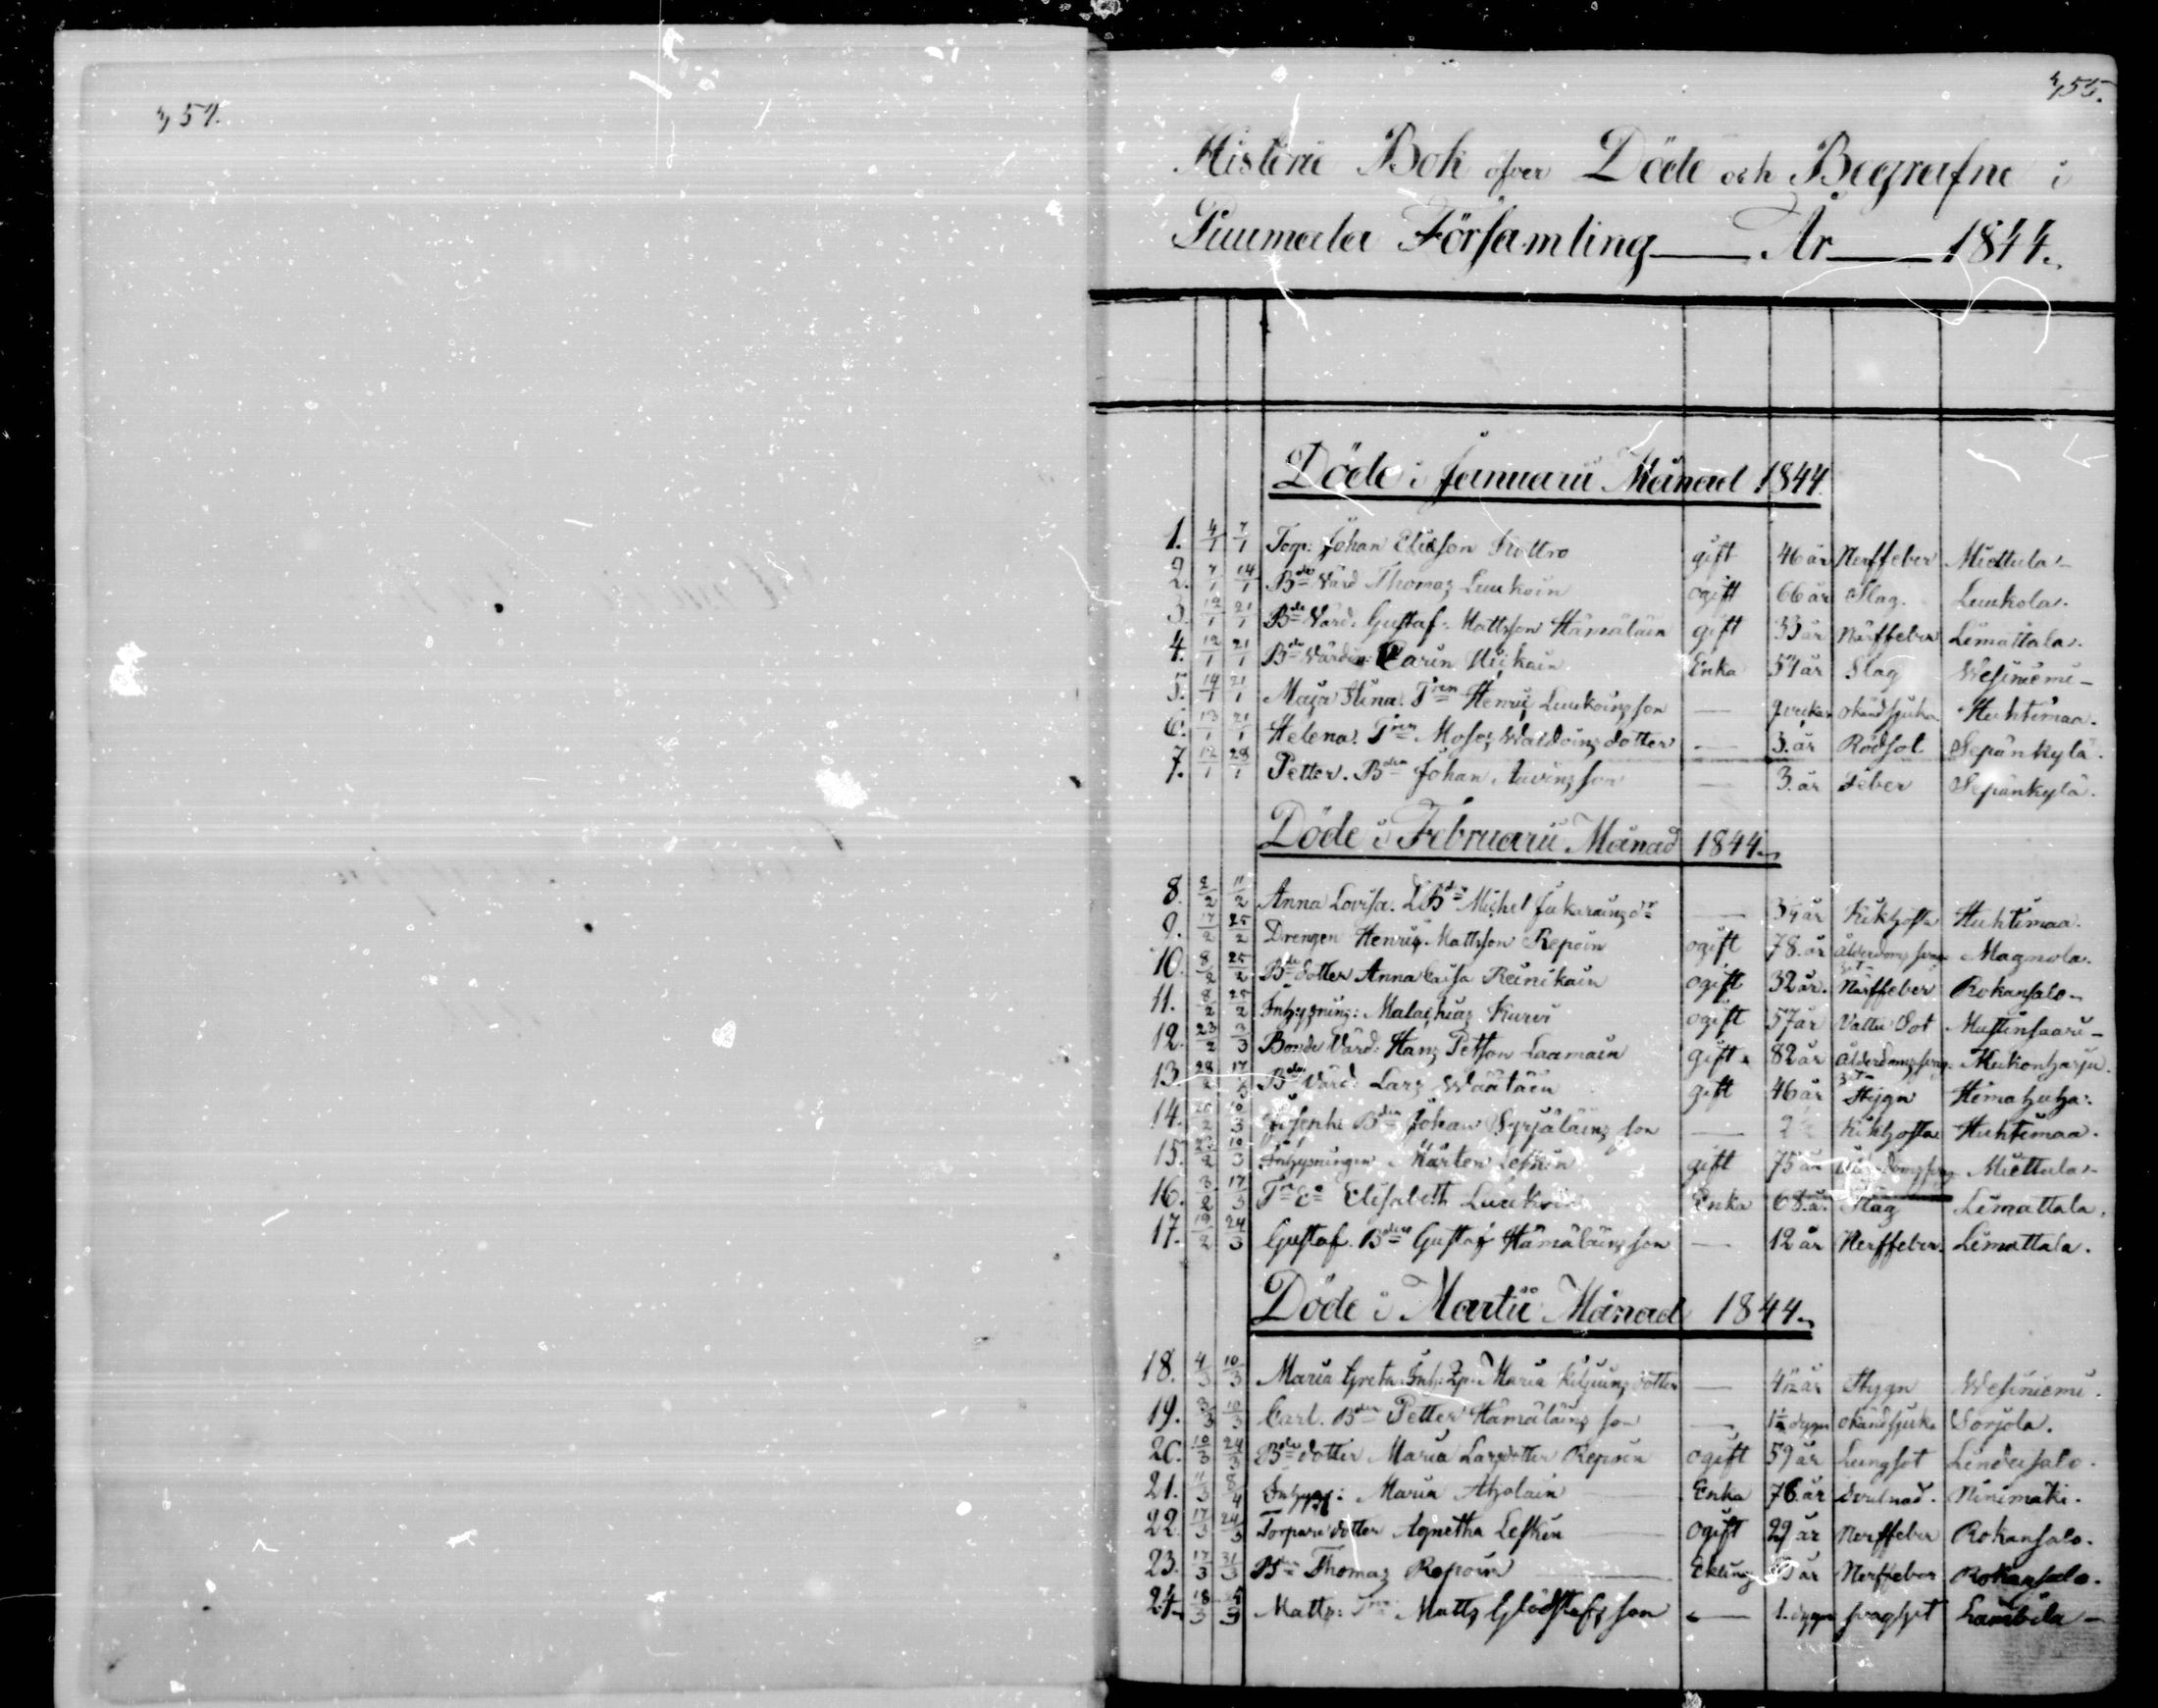 454.
455.
Historie Bok öfver Döde och Begrafne i
Puumala Församling År 1844.
Döde i Januarii Månad 1844.
1. 4/1 7/1 Torp: Johan Eliasson Kottro gift 46 år Nerffeber Miettula
2. 7/1 14/1 Bde Värd Thomas Luukoin ogift 66 år Slag. Luukola.
3. 12/1 21/1 Bde Värd: Gustaf Mattsson Hämäläin gift 33 år Närffeber Liimattala.
4. 12/1 21/1 Bde Värdin: Carin Häikäin Enka 54 år Slag Wesiniemi
5. 14/1 21/1 Maja Stina. Tren Henric Luukoins son — 2 veckor okänd sjuka Huhtimaa.
6. 13/1 21/1 Helena. Tren Moses Waldoins dotter — 3. år Rödsot Sepänkylä.
7. 12/1 28/1 Petter. Bden Johan Auvins son — 3. år Feber Sepänkylä.
Döde i Februarii Månad 1844.
8. 2/2 11/2 Anna Lovisa. Bde Michel dr — 3/4 år Kikhosta Huhtimaa.
9. 17/2 25/2 Drengen Henric Mattsson Repoin ogift 78. år ålderdoms svaghet Magnola.
10. 8/2 25/2 Bde dotter Anna Caisa Reinikain ogift 32 år. Närffeber Rokansalo
11. 8/2 25/2 Inhysning: Malachias Kurvi ogift 57 år Vattu Sot Mustinsaari
12. 23/2 3/3 Bonde Värd: Hans Petsson Laamain gift 82 år ålderdoms svaghet Hukonharju.
13. 28/2 17/3 Bde Värd: Lars Wäätäin gift 46 år Stygn Himahuha.
14. 10/3 Joseph: Bden Johan Syrjäläins son — Kikhosta Huhtimaa.
15. 22/2 10/3 Inhysningen Mårten Leskin gift 75 år ålderdoms svag Miettula
16. 3/2 17/3 Tre Ea Elisabeth Luukoin Enka 68. å. Slag Liimattala.
17. 19/2 24/3 Gustaf. Bden Gustaf Hämäläins son — 12 år Nerffeber. Liimattala.
Döde i Martii Månad 1844.
18. 4/3 10/3 Maria Greta. Inh: Maria dotter — Stygn Wesiniemi.
19. 3/3 10/3 Carl. Bden Petter Hämäläins son — dygn okänd sjuka Sorjola.
20. 10/3 24/3 Bde dotter Maria Larsdotter Repoin ogift 59 år Lungsot Lindusalo.
21. 11/3 8/4 Inhysg: Maria Aholain Enka 76. år Niinimäki.
22. 17/3 24/3 Torpare dotter Agnetha Leskin ogift 29 år Nerffeber Rokansalo.
23. 17/3 31/3 Bden Thomas Repoin Ekling år Nerffeber Rokansalo.
24. 18/3 Matts: Tren Matts Glödstafs son — 1. dygn svaghet